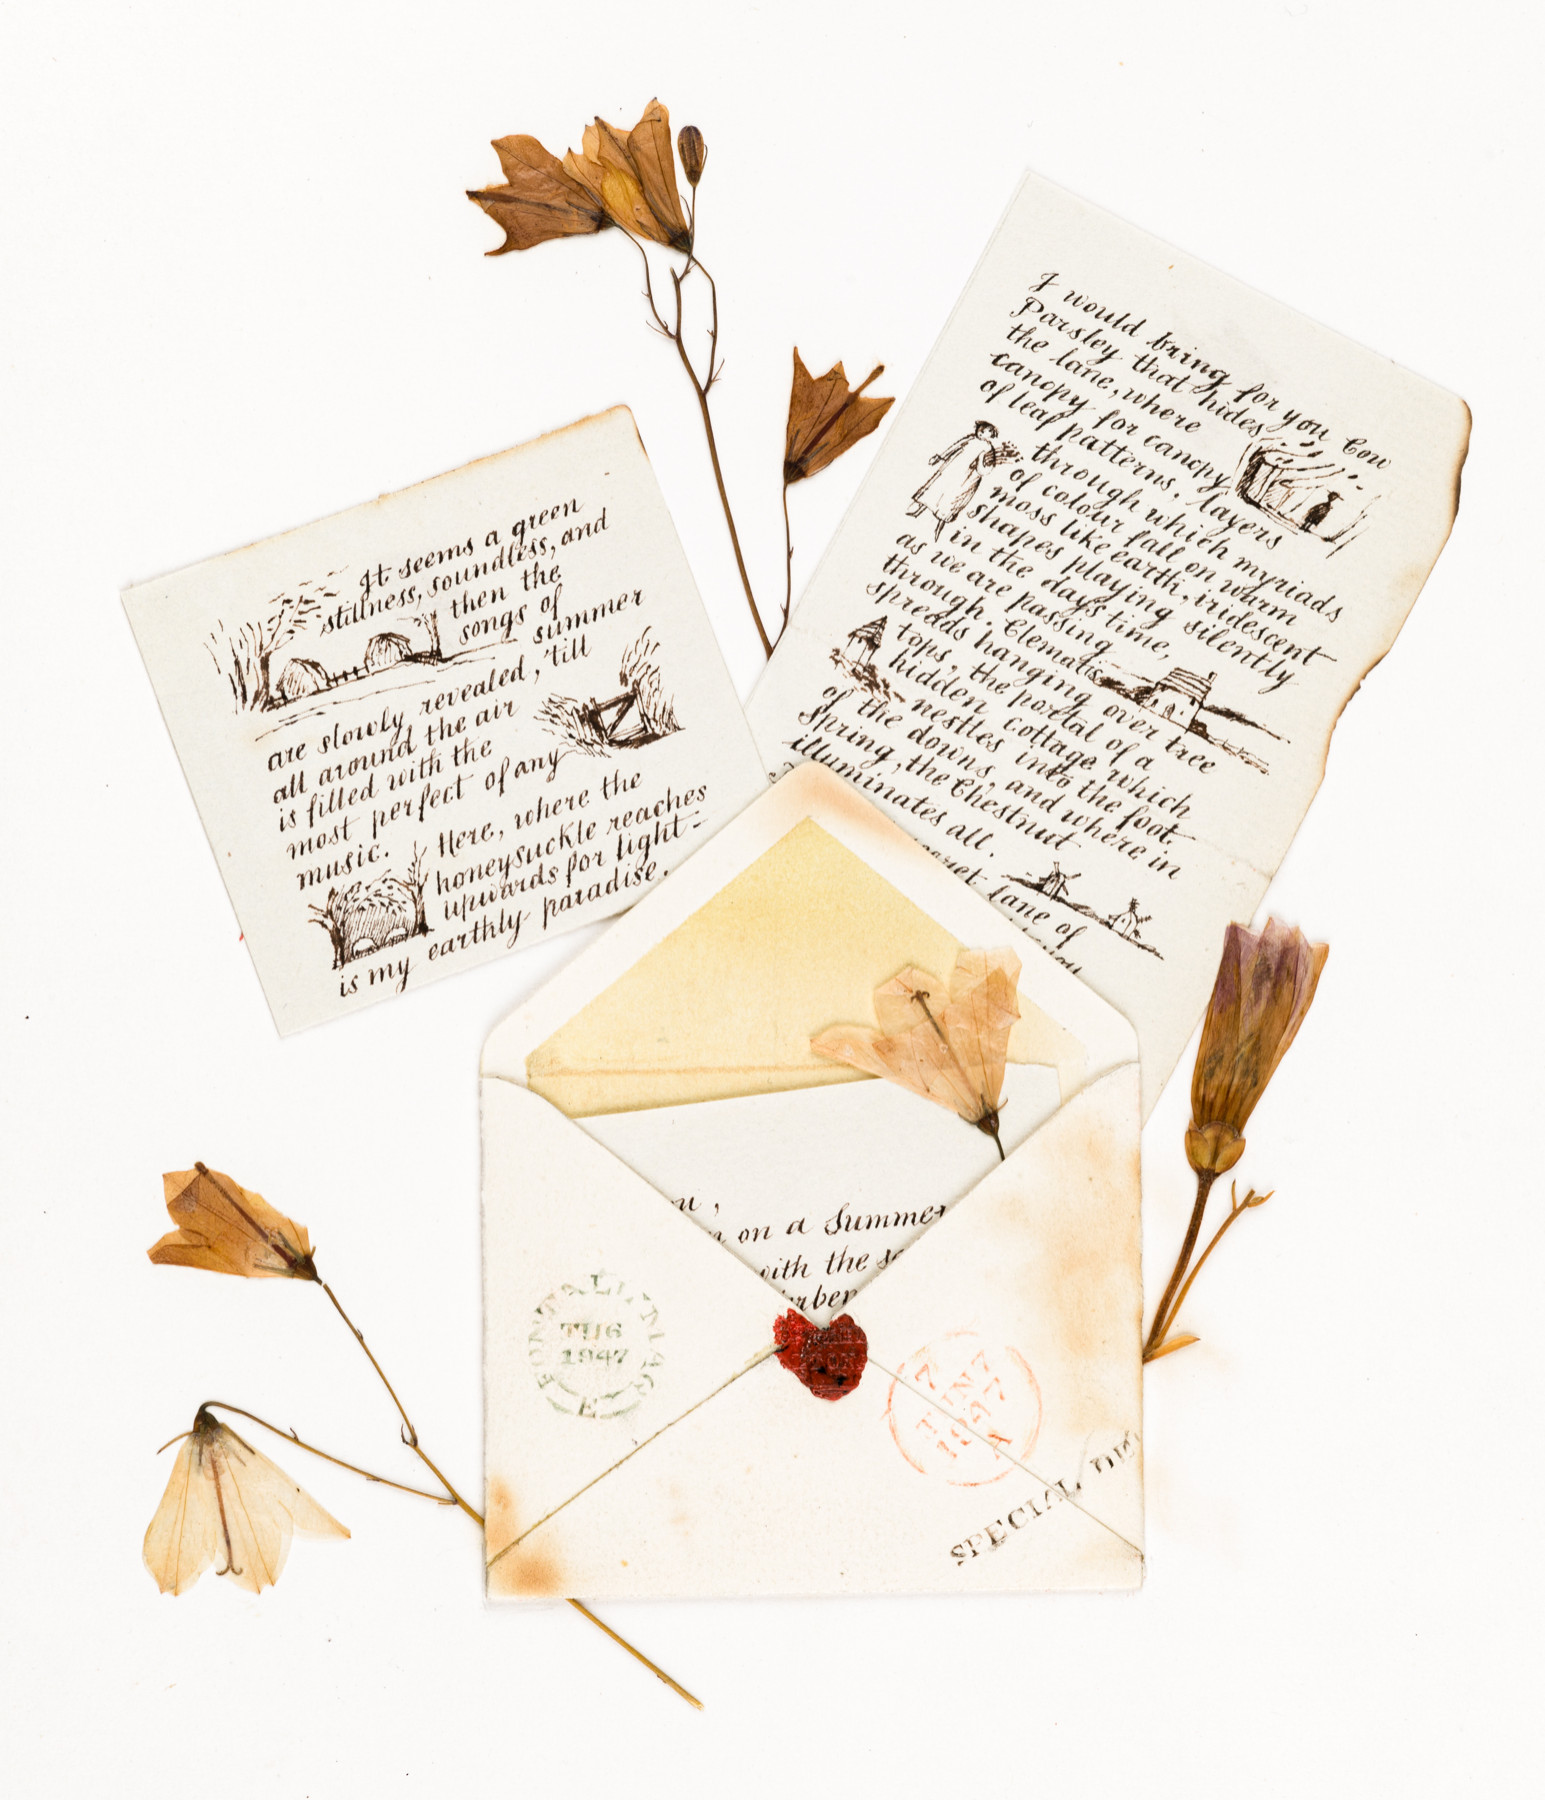 It seems a green
stillness, soundless, and
then the
songs of
summer
are slowly revealed, 'till
all around the air
is filled with the
most perfect of any
music.
Here, where the
honeysuckle reaches
upwards for light-
is my earthly paradise.
I would bring for you Cow
Parsley that hides
the lane, where
canopy for canopy
of leaf patterns, layers
through which myriads
of colour fall on warm
moss like earth, iridescent
shapes playing silently
in the days time,
as we are passing
through. Clematis
spreads hanging over tree
tops, the portal of a
hidden cottage which
nestles into the foot
of the downs, and where in
spring, the Chestnut
illuminates all.
lane of
on a Summer
with the
TU6
1947
E
7
JUN 7
1947
A
SPECIAL